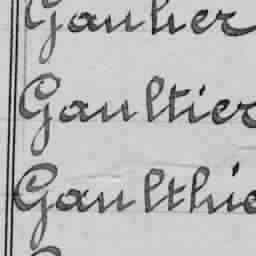 Gauher
Gaultier
Gaulthie